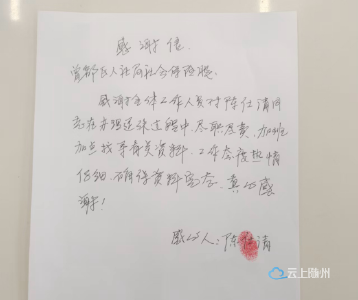 感谢信
曾都区人社局社会保险股:
感谢全体工作人员对陈仕清同
志在办理退休过程中,尽职尽责,加班
加点找寻有关资料,工作态度热情
仔细,确保资料完态,真的感
谢!
感谢人:陈仕清
云上随州